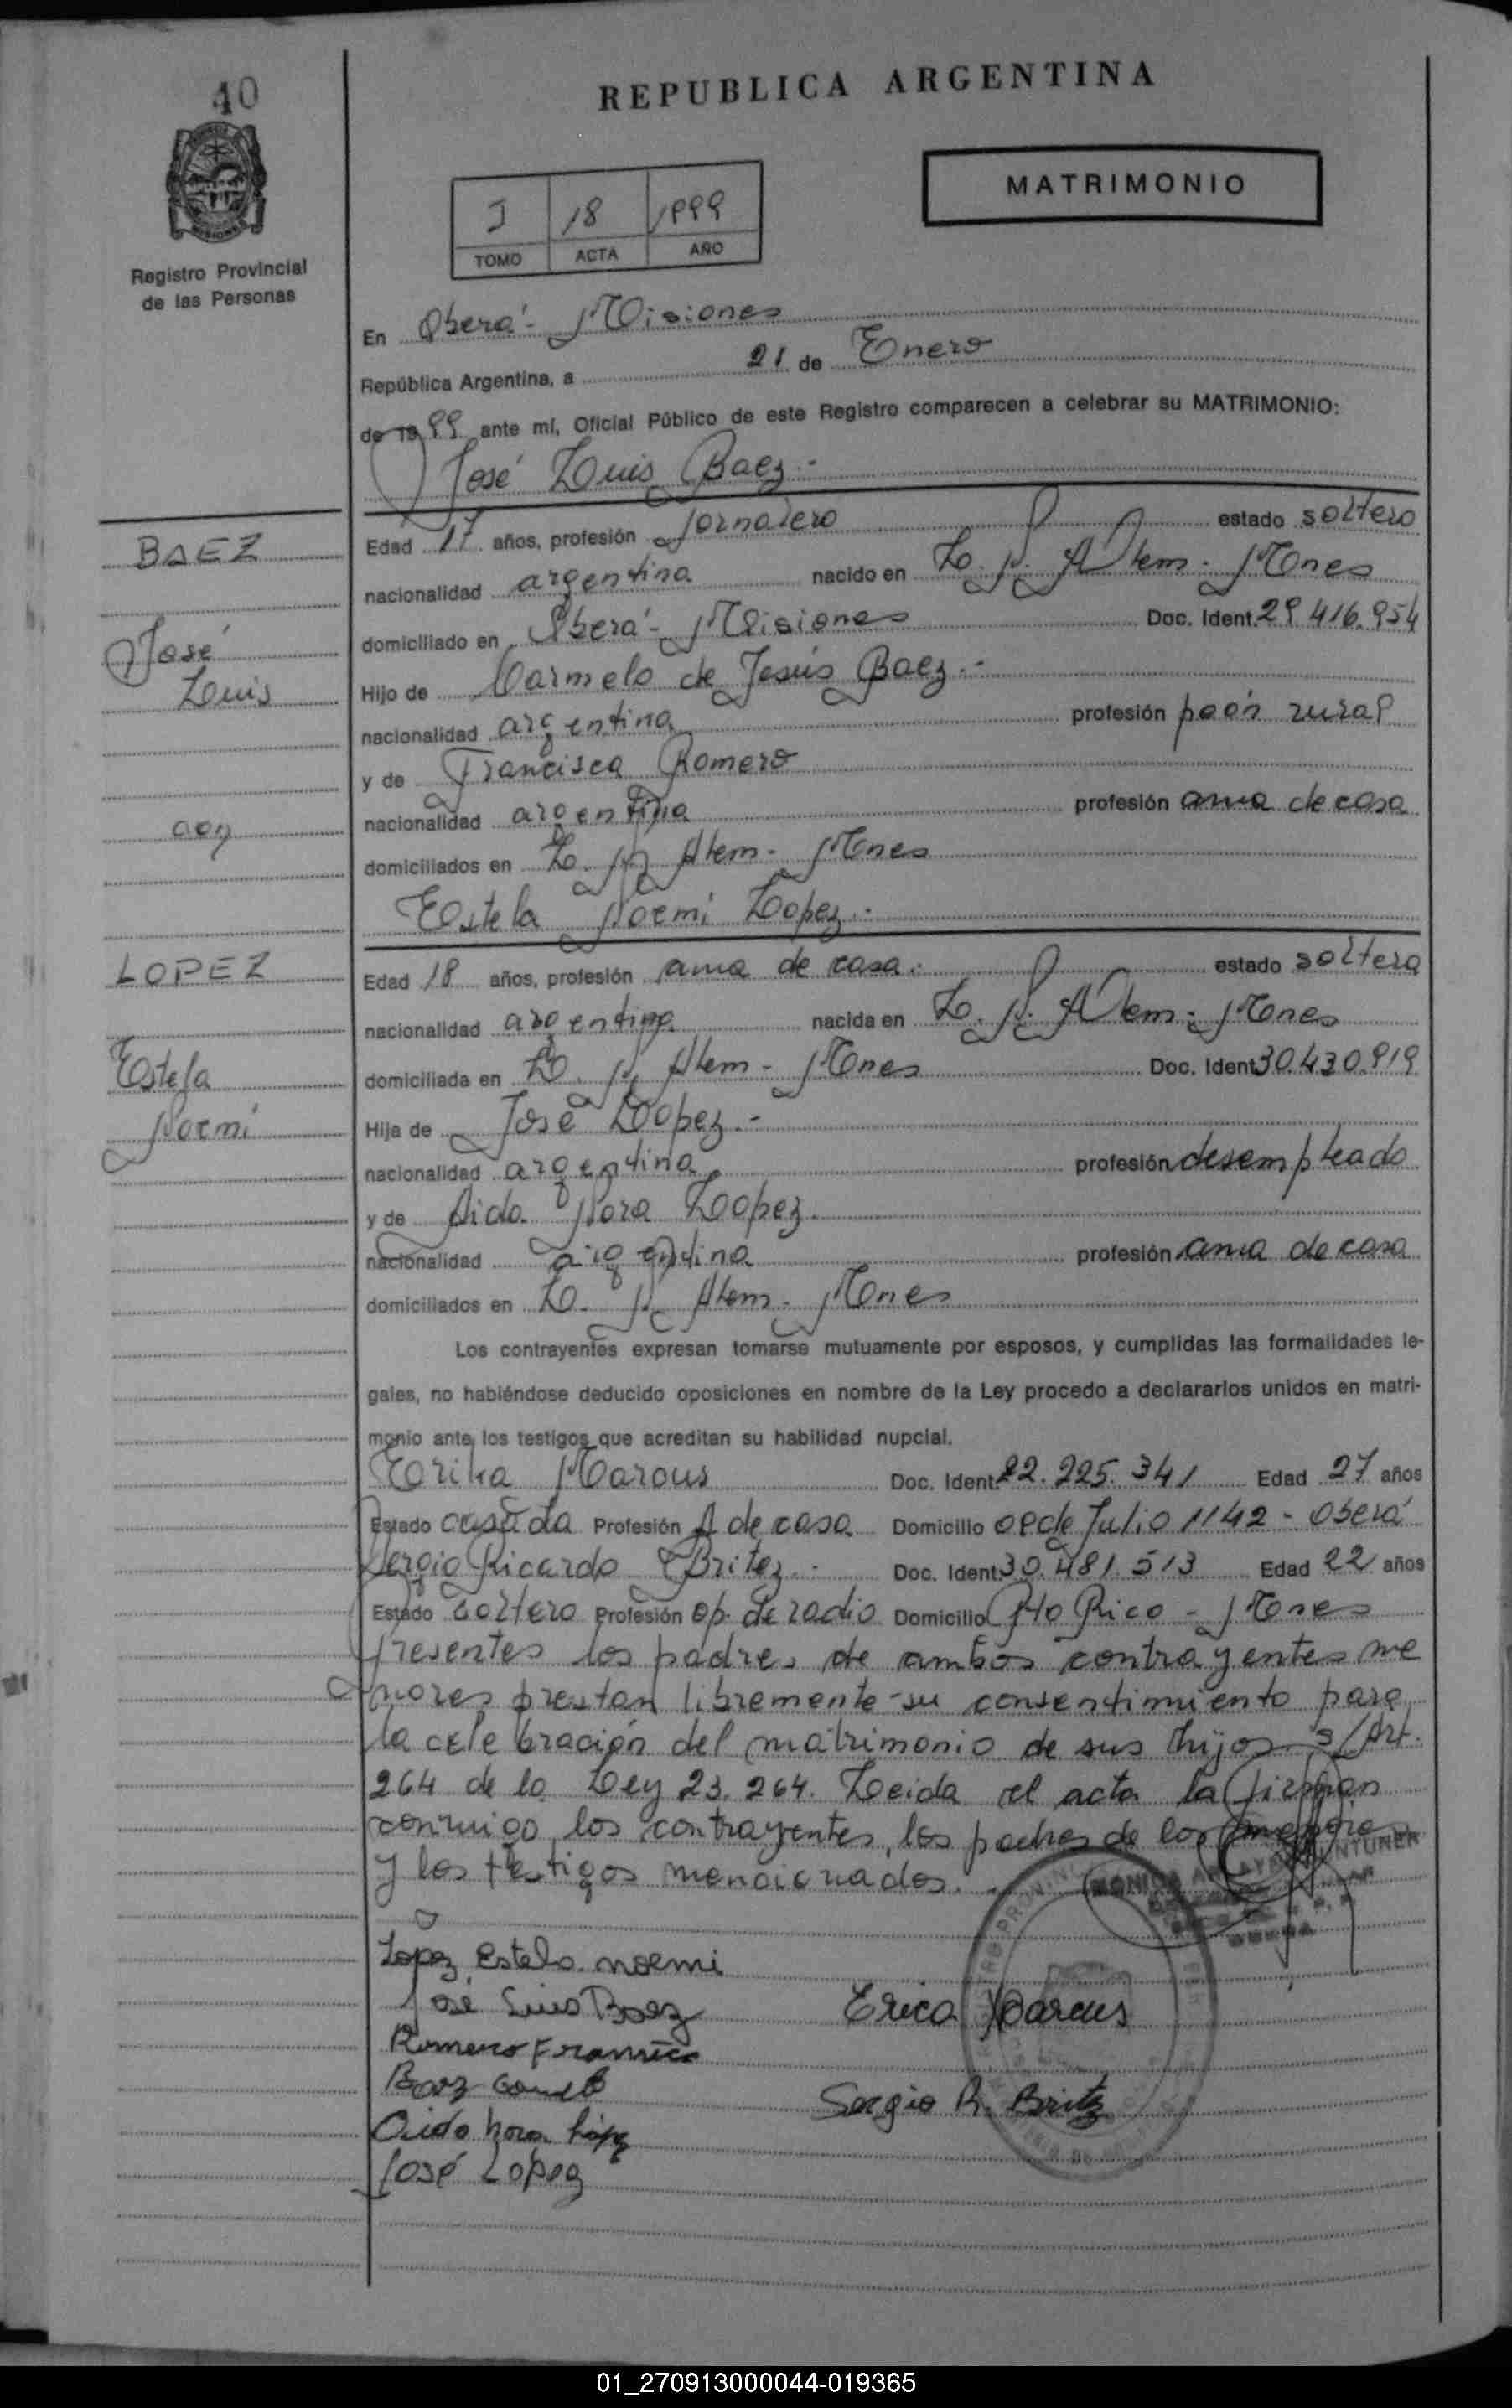 40
REPUBLICA ARGENTINA
MATRIMONIO
I 18 1999
TOMO ACTA AÑO
Registro Provincial
de las Personas
En Oberá - Misiones
República Argentina, a 21 de Enero
de 19 99 ante mí, Oficial Público de este Registro comparecen a celebrar su MATRIMONIO:
José Luis Baez.-
BAEZ
José
Luis
con
LOPEZ
Estela
Noemi
Edad 17 años, profesión Jornalero estado soltero
nacionalidad argentina nacido en L. N. Alem - Mnes
domiciliado en Oberá - Misiones Doc. Ident. 29.416.954
Hijo de Carmelo de Jesús Baez.-
nacionalidad argentina profesión peón rural
y de Francisca Romero
nacionalidad argentina profesión ama de casa
domiciliados en L. N. Alem - Mnes
Estela Noemi Lopez.-
Edad 18 años, profesión ama de casa.- estado soltera
nacionalidad argentina nacida en L. N. Alem - Mnes
domiciliada en L. N. Alem - Mnes Doc. Ident. 30.430.919
Hija de José Lopez.-
nacionalidad argentina profesión desempleado
y de Aida Nora Lopez.
nacionalidad argentina profesión ama de casa
domiciliados en L. N. Alem - Mnes
Los contrayentes expresan tomarse mutuamente por esposos, y cumplidas las formalidades le-
gales, no habiéndose deducido oposiciones en nombre de la Ley procedo a declararlos unidos en matri-
monio ante los testigos que acreditan su habilidad nupcial.
Erika Marcus Doc. Ident. 22.225.341 Edad 27 años
Estado casada Profesión A de casa Domicilio 09 de Julio 1142 - Oberá
Sergio Ricardo Britez.- Doc. Ident. 30.481.513 Edad 22 años
Estado soltero Profesión op. de radio Domicilio Pto Rico - Mnes
Presentes los padres de ambos contrayentes me
nores prestan libremente su consentimiento para
la celebración del matrimonio de sus hijos s/Art.
264 de la Ley 23.264. Leida el acta la firman
conmigo los contrayentes, los padres de los menores
y los testigos mencionados.
Lopez Estela noemi
José Luis Baez
Erica Marcus
Romero Francisca
Baez
Sergio R. Britez
Aida Nora López
José López
01_270913000044-019365